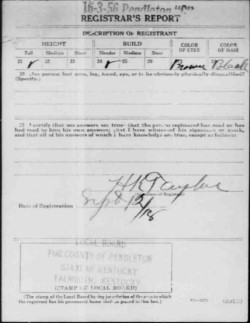 16-3-56 Pendleton
REGISTRAR'S REPORT
DESCRIPTION OF REGISTRANT
HEIGHT BUILD COLOR OF EYES COLOR OF HAIR
Tall Medium Short Slender Medium Stout
21 22 23 24 25 26 Brown Black
29 Has person lost arm, leg, hand, eye, or is he obviously physically disqualified?
(Specify.)
30 I certify that my answers are true; that the person registered has read or has
had read to him his own answers; that I have witnessed his signature or mark,
and that all of his answers of which I have knowledge are true, except as follows:
H K Taylor
Date of Registration Sept 12/18
LOCAL BOARD
FOR COUNTY OF PENDLETON
STATE OF KENTUCKY
FALMOUTH, KENTUCKY
(STAMP OF LOCAL BOARD)
(The stamp of the Local Board having jurisdiction of the area in which
the registrant has his permanent home shall be placed in this box.)